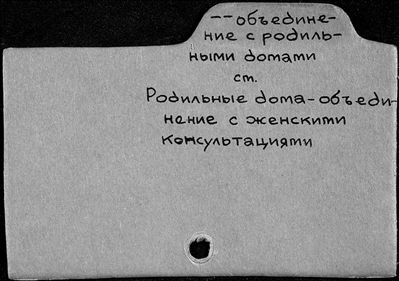 --объедине-
ние с родиль-
ными домами
ст.
Родильные дома-объеди-
нение с женскими
консультациями